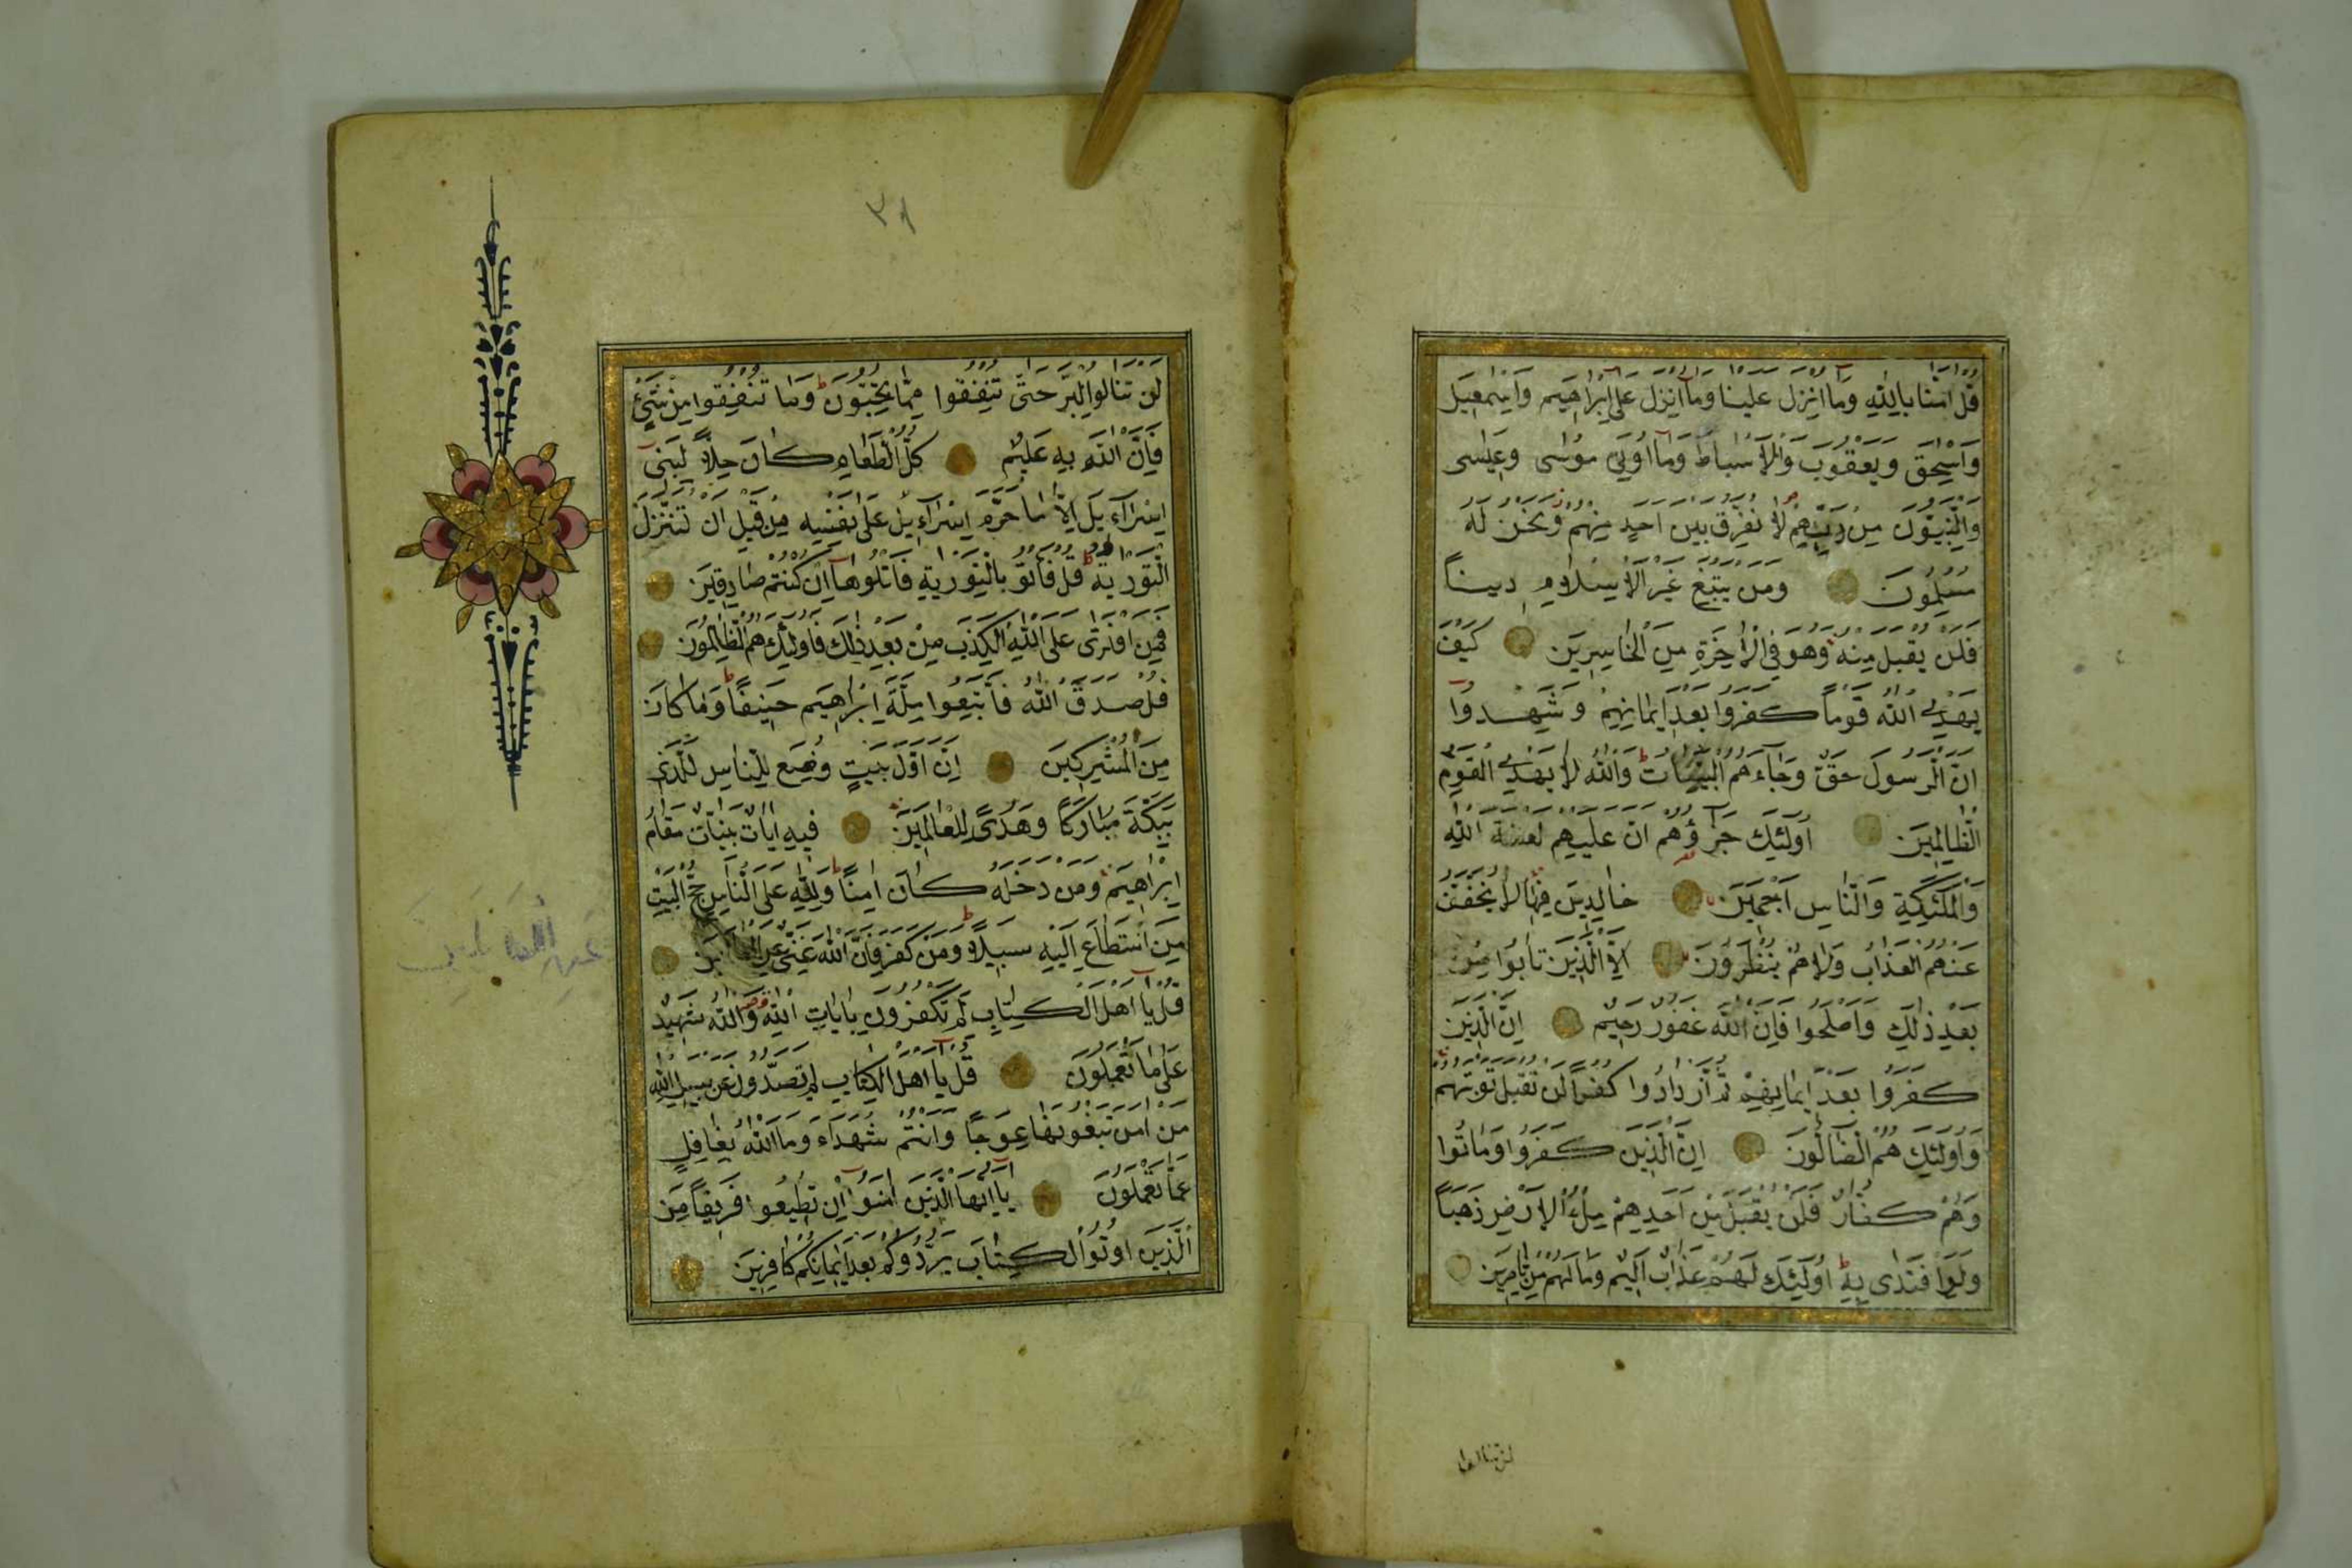 قُلْ اٰمَنَّا بِاللّٰهِ وَمَٓا اُنْزِلَ عَلَيْنَا وَمَٓا اُنْزِلَ عَلٰٓى اِبْرٰاهِيمَ وَاِسْمٰعِيلَ
وَاِسْحٰقَ وَيَعْقُوبَ وَالْاَسْبَاطِ وَمَٓا اُوتِيَ مُوسٰى وَعِيسٰى
وَالنَّبِيُّونَ مِنْ رَبِّهِمْ لَا نُفَرِّقُ بَيْنَ اَحَدٍ مِنْهُمْ وَنَحْنُ لَهُ
مُسْلِمُونَ وَمَنْ يَبْتَغِ غَيْرَ الْاِسْلَامِ دِينًا
فَلَنْ يُقْبَلَ مِنْهُ وَهُوَ فِي الْاٰخِرَةِ مِنَ الْخَاسِرِينَ كَيْفَ
يَهْدِي اللّٰهُ قَوْمًا كَفَرُوا بَعْدَ اِيمَانِهِمْ وَشَهِدُوا
اَنَّ الرَّسُولَ حَقٌّ وَجَٓاءَهُمُ الْبَيِّنَاتُ وَاللّٰهُ لَا يَهْدِي الْقَوْمَ
الظَّالِمِينَ اُولٰٓئِكَ جَزَٓاؤُهُمْ اَنَّ عَلَيْهِمْ لَعْنَةَ اللّٰهِ
وَالْمَلٰٓئِكَةِ وَالنَّاسِ اَجْمَعِينَ خَالِدِينَ فِيهَا لَا يُخَفَّفُ
عَنْهُمُ الْعَذَابُ وَلَا هُمْ يُنْظَرُونَ اِلَّا الَّذِينَ تَابُوا مِنْ
بَعْدِ ذٰلِكَ وَاَصْلَحُوا فَاِنَّ اللّٰهَ غَفُورٌ رَحِيمٌ اِنَّ الَّذِينَ
كَفَرُوا بَعْدَ اِيمَانِهِمْ ثُمَّ ازْدَادُوا كُفْرًا لَنْ تُقْبَلَ تَوْبَتُهُمْ
وَاُولٰٓئِكَ هُمُ الضَّٓالُّونَ اِنَّ الَّذِينَ كَفَرُوا وَمَاتُوا
وَهُمْ كُفَّارٌ فَلَنْ يُقْبَلَ مِنْ اَحَدِهِمْ مِلْءُ الْاَرْضِ ذَهَبًا
وَلَوِ افْتَدٰى بِهِ اُولٰٓئِكَ لَهُمْ عَذَابٌ اَلِيمٌ وَمَا لَهُمْ مِنْ نَاصِرِينَ
لن تنالوا
٣٨
لَنْ تَنَالُوا الْبِرَّ حَتّٰى تُنْفِقُوا مِمَّا تُحِبُّونَ وَمَا تُنْفِقُوا مِنْ شَيْءٍ
فَاِنَّ اللّٰهَ بِهِ عَلِيمٌ كُلُّ الطَّعَامِ كَانَ حِلًّا لِبَنِي
اِسْرَٓاءِيلَ اِلَّا مَا حَرَّمَ اِسْرَٓاءِيلُ عَلٰى نَفْسِهِ مِنْ قَبْلِ اَنْ تُنَزَّلَ
التَّوْرٰيةُ قُلْ فَأْتُوا بِالتَّوْرٰيةِ فَاتْلُوهَٓا اِنْ كُنْتُمْ صَادِقِينَ
فَمَنِ افْتَرٰى عَلَى اللّٰهِ الْكَذِبَ مِنْ بَعْدِ ذٰلِكَ فَاُولٰٓئِكَ هُمُ الظَّالِمُونَ
قُلْ صَدَقَ اللّٰهُ فَاتَّبِعُوا مِلَّةَ اِبْرٰاهِيمَ حَنِيفًا وَمَا كَانَ
مِنَ الْمُشْرِكِينَ اِنَّ اَوَّلَ بَيْتٍ وُضِعَ لِلنَّاسِ لَلَّذِي
بِبَكَّةَ مُبَارَكًا وَهُدًى لِلْعَالَمِينَ فِيهِ اٰيَاتٌ بَيِّنَاتٌ مَقَامُ
اِبْرٰاهِيمَ وَمَنْ دَخَلَهُ كَانَ اٰمِنًا وَلِلّٰهِ عَلَى النَّاسِ حِجُّ الْبَيْتِ
مَنِ اسْتَطَاعَ اِلَيْهِ سَبِيلًا وَمَنْ كَفَرَ فَاِنَّ اللّٰهَ غَنِيٌّ عَنِ الْعَالَمِينَ
قُلْ يَٓا اَهْلَ الْكِتَابِ لِمَ تَكْفُرُونَ بِاٰيَاتِ اللّٰهِ وَاللّٰهُ شَهِيدٌ
عَلٰى مَا تَعْمَلُونَ قُلْ يَٓا اَهْلَ الْكِتَابِ لِمَ تَصُدُّونَ عَنْ سَبِيلِ اللّٰهِ
مَنْ اٰمَنَ تَبْغُونَهَا عِوَجًا وَاَنْتُمْ شُهَدَٓاءُ وَمَا اللّٰهُ بِغَافِلٍ
عَمَّا تَعْمَلُونَ يَٓا اَيُّهَا الَّذِينَ اٰمَنُٓوا اِنْ تُطِيعُوا فَرِيقًا مِنَ
الَّذِينَ اُوتُوا الْكِتَابَ يَرُدُّوكُمْ بَعْدَ اِيمَانِكُمْ كَافِرِينَ